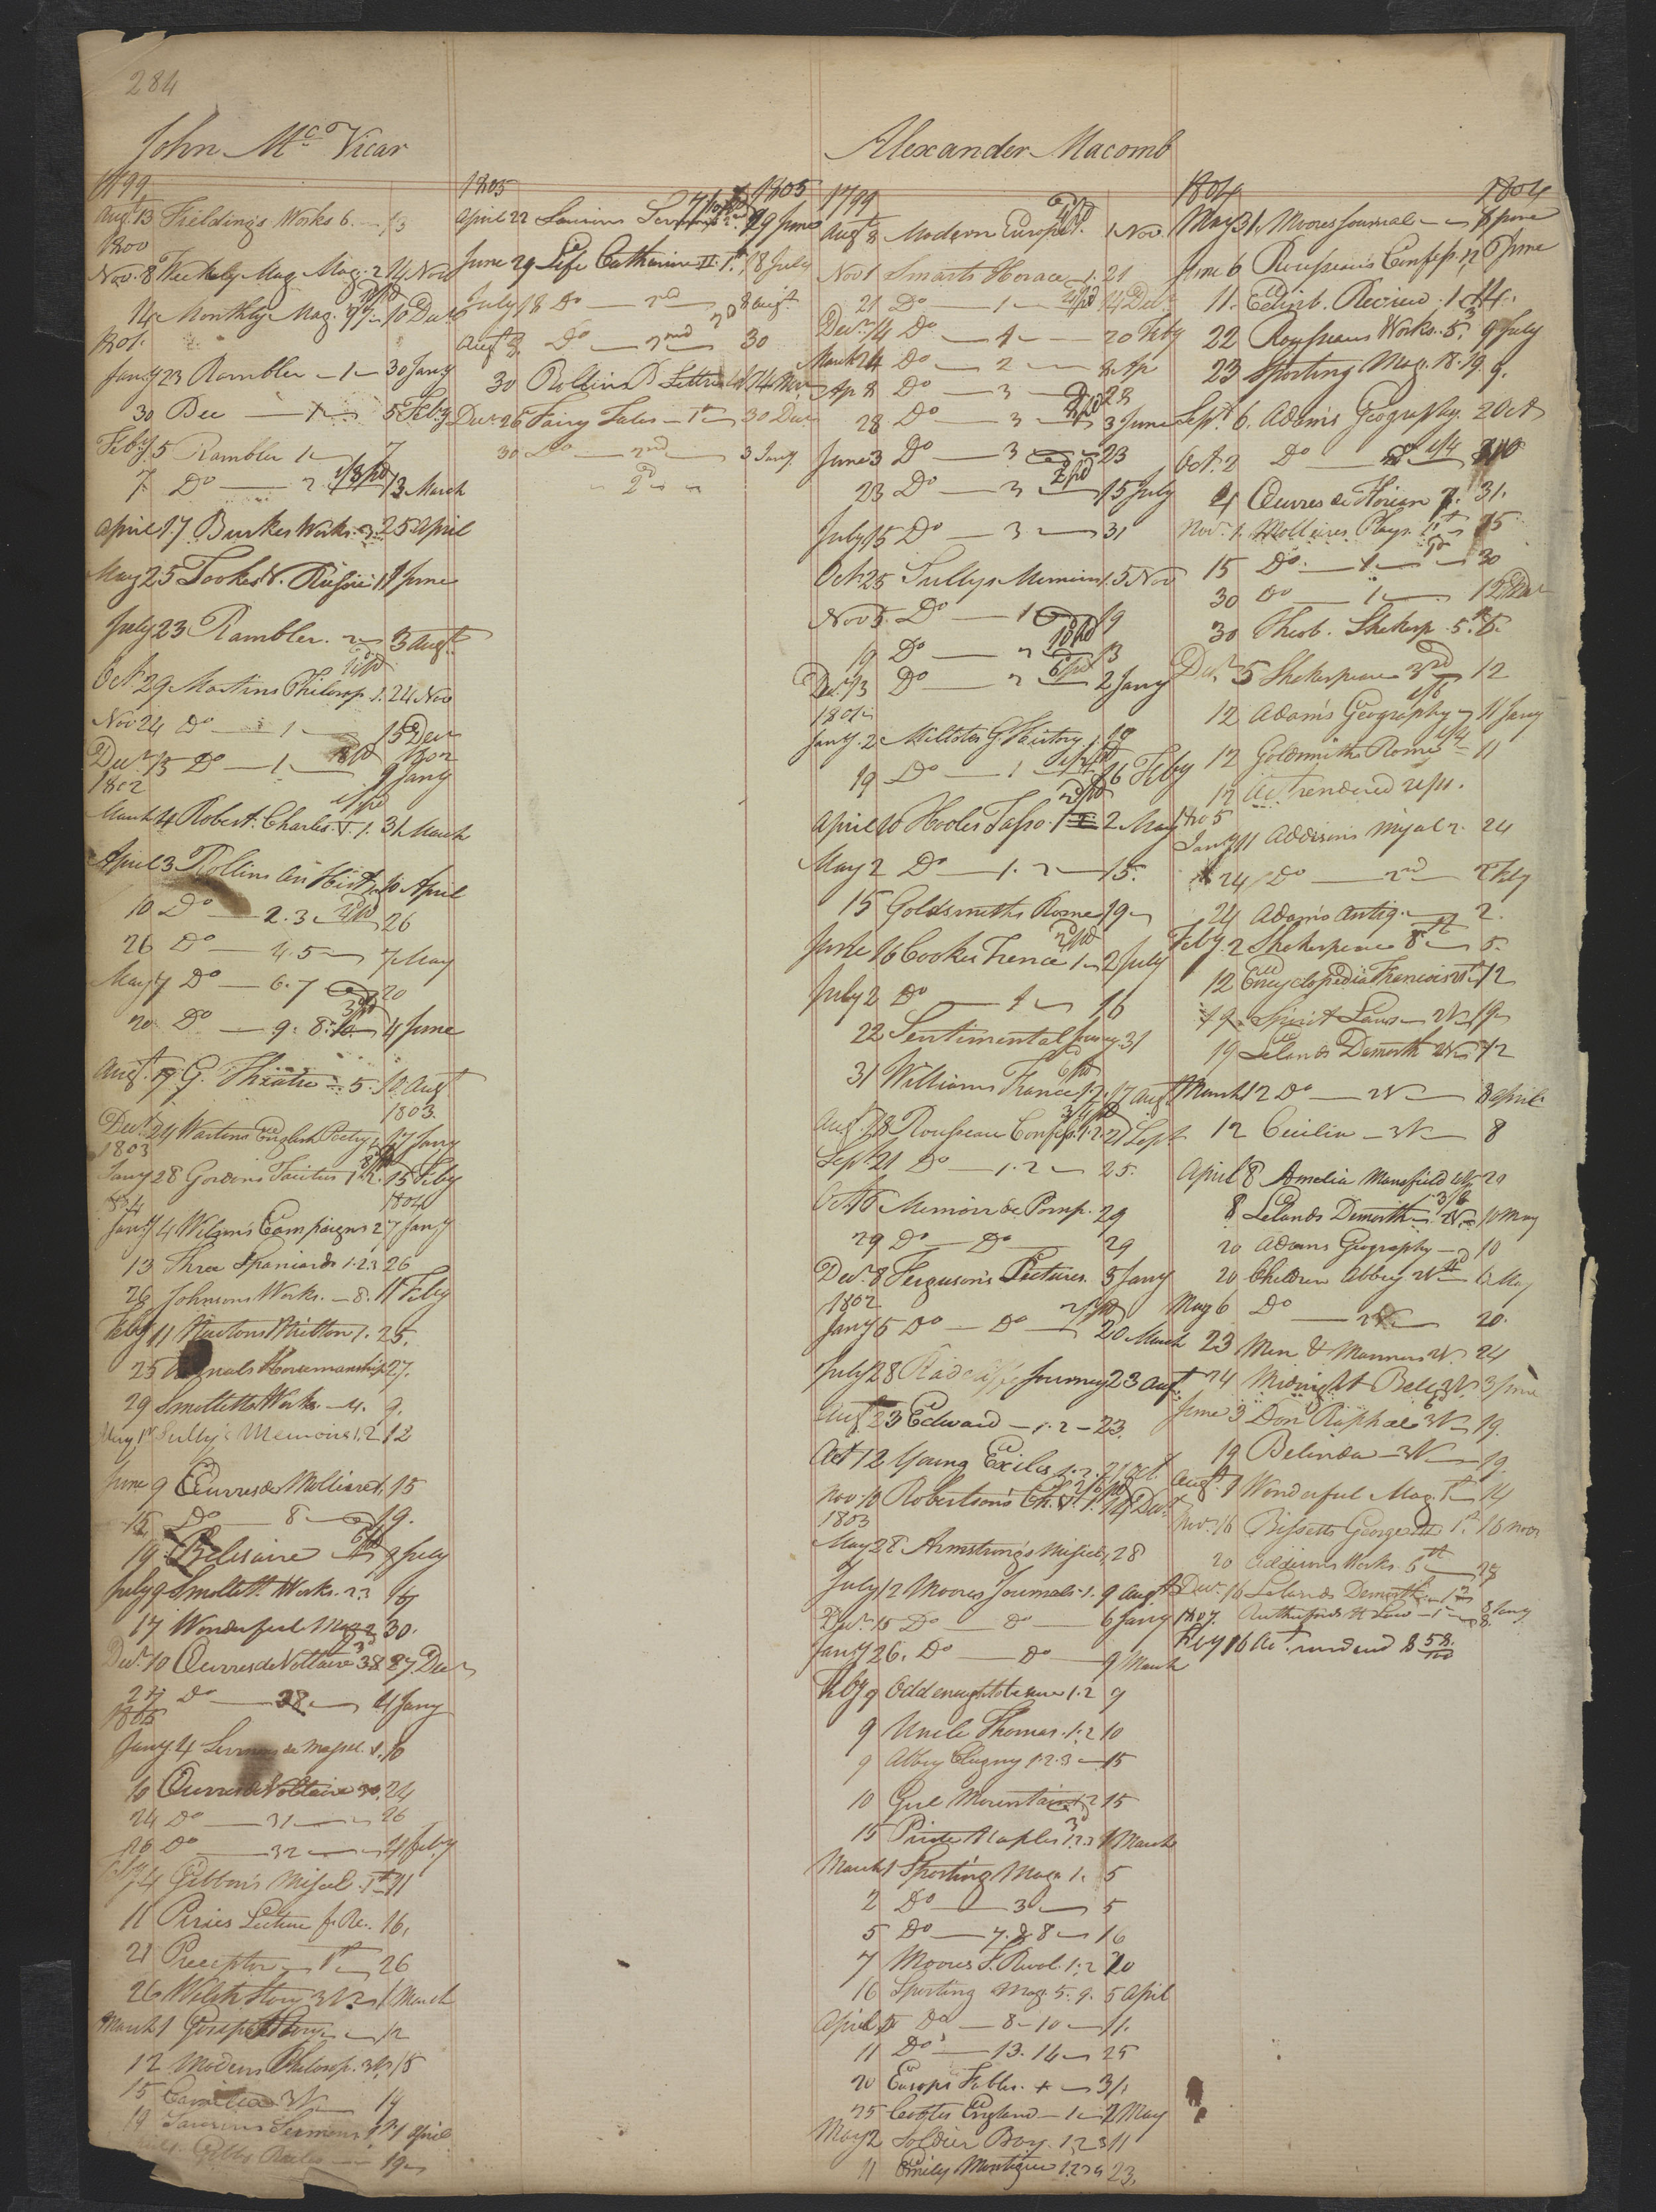 284
John McVicar
1799
Augt 13 Fieldings Works 6
1800
Nov. 8 Weekely Mag. Mag. 2 14 Nov
14 Monthly Mag. 10 Decr
1801.
Jany 23 Rambler 1 30 Jany
30 Bee 1 5 Feby
Feby 5 Rambler 1 7
7 Do 2 1/8 pd 13 March
April 17 Burkes Works. 3. 25 April
May 25 Tookes V. Russia 1 June
July 23 Rambler. 2 3 Augt
Oct 29 Martins Philosop. 1. 24 Nov
Nov 24 Do 1 15 Decr
Decr 15 Do 1 9 Jany 1802
1802
March 4 Robert. Charles V. 1. 31 March
April 3 Rollins An Hist 10 April
10 Do 2. 3 26
26 Do 4. 5 7 May
May 7 Do 6. 7 20
20 Do 9. 8. 10 4 June
Augt G. Theatre 5. 10 Augt
1803.
Decr 29 Wartons English Poetry 17 Jany
1803
Jany 28 Gordons Tacitus 1. 2. 15 Feby
1804
Jany 4 Wilsons Campaigns 2 7 Jany
13 Three Spaniards 1. 2. 3 26
26 Johnsons Works. 8. 11 Feby
Feby 11 1. 25.
25 Horsemanship 27.
29 Smolletts Works 4. 9.
May 1st Sully's Memoirs 1. 2 12
June 9 Œuvres de Molliere 1. 15
15 Do 8 19.
19 Belisaire 9 July
July 9 Smollett Works. 2. 3 16
17 Wonderful Mag 2 30.
Decr 10 Œuvres de Voltaire 38 27 Decr
27 Do 28 4 Jany
1805
Jany 4 Sermons de Massil. 1. 10
10 Œuvres de Voltaire 30. 24
24 Do 31 26
26 Do 32 4 Feby
Feby 4 Gibbon's Miscel. 1st 11
11 Piries Lecture 16.
21 Preceptor 1st 26
26 Welch Story 3 V 1 March
March 1 Gossip Story 12
12 Modern Philosop. 3 V 15
15 Camilla 3 V 19
19 Saurins Sermons 1st 1 April
Gibbs Rules 19
1805 1805
April 22 Saurins Sermons 29 June
June 29 Life Catharine II. 1st 18 July
July 18 Do 2nd 8 Augt
Augt 8 Do 2nd 30
30 Rollins B Lettres
Decr 26 Fairy Tales 1st 30 Decr
30 Do 2nd 3 Jany
Alexander Macomb
1799
Augt 8 Modern Europe 1 Nov.
Nov 1 Smarts Horace 1. 21
21 Do 1 14 Decr
Decr 14 Do 1 20 Feby
March 24 Do 2 8 Ap
Ap 8 Do 3 28
28 Do 3 3 June
June 3 Do 3 23
23 Do 3 15 July
July 15 Do 3 31
Oct 25 Sullys Memoirs 1. 5 Nov
Nov 5. Do 1 19
19 Do 2 13
Decr 13 Do 2 2 Jany
1801
Jany. 2 1 19
19 Do 1 26 Feby
April 10 Hooles Tasso. 1 2 May
May 2 Do 1. 2 15.
15 Goldsmiths Rome 19
June 16 Cookes Terence 1 2 July
July 2 Do 1 16
22 Sentimental Journey 31
31 Williams France 1. 2. 17 Augt
Augt 18 Rousseau Confess. 1. 2. 21 Sept
Sept 21 Do 1. 2 25.
Oct 16 Memoir de Pomp. 29
29 Do Do 29
Decr. 8 Ferguson's Lectures. 5 Jany
1802
Jany 5 Do Do 20 March
July 28 Radcliffe Journey 23 Augt
Augt 23 Edward 1. 2 23.
Oct 12 Young Exiles 1. 2. 21 Oct.
Nov. 10 Robertson's Ch. V. 1. 14 Decr
1803
May 28 Armstrong's Miscel. 28
July 12 Moores Journal 1. 9 Augt
Decr. 15 Do Do 6 Jany
Jany 26. Do Do 9 March
Feby 9 Odd enough to be sure 1. 2 9
9 Uncle Thomas. 1. 2 10
9 Abbey Clugny 1. 2. 3 15
10 Gril Mountain 1. 2 15
15 Pirate Naples 1. 2. 3 1 March
March 1 Sporting Mag. 1. 5
2 Do 3 5
5 Do 7. & 8 16
7 Moores F. Revol. 1. 2 20
16 Sporting Mag. 5. 9. 5 April
April 5 Do 8 - 10 11.
11 Do 13. 14 25
20 Easops Fables. 31.
25 Cootes England 1 2 May
May 2 Soldier Boy. 1. 2 3 11
11 Emily Montigue 1. 2 3 4 23.
1804 1804
May 31. Moores Journal 6 June
June 6 Rousseau's Confess. 1. 2 6 June
11. Edinb. Review. 1
22 Rousseaus Works. 5. 9 July
23 Sporting Mag. 18. 19. 9.
Sept 6. Adam's Geography. 2 Oct
Oct. 2 Do 1/4
4 Œuvres de Florian 7. 31.
Nov. 1. Mollieres Plays. 1st 15
15 Do. 1 30
30 Do 1 12 Decr
30 Theob. Shakesp. 5. 5.
Decr 5 Shakespeare 3rd 12
12 Adam's Geography 11 Jany
12 Goldsmiths Rome 1/4 11
12 Act rendered
1805
Jany 11 Addisons Miscel 2. 24
24 Do 2nd 2 Feby
24 Adams Antiq. 2.
Feby. 2 Shakespeare 8th 5.
12 Encyclopedia Francois 12
19. Spirit Laws 2 V 19
19 Lelands Demosth 2 V 12
March 12 Do 2 V 8 April
12 Cecilia 3 V 8
April 8 Amelia Mansfield 20
8 Lelands Demosth 2 V. 10 May
20 Adams Geography 10
20 Children Abbey 2 V 6 May
May 6 Do 2 V 20.
23 Men & Manners 2 V. 24
24 Midnight Bell 2 V. 3 June
June 3 Don Raphael 3 V 19.
19 Belinda 3 V 19.
Augt. 9 Wonderful Mag. 1st 14
Nov. 16 Bissetts George 1st 16 Nov
20 Addisons Works 5th 28
Decr 16 Lelands Demosth. 1st
1807. Rutherfords N Law 1 8 Jany
Feby 16 Act. rendered